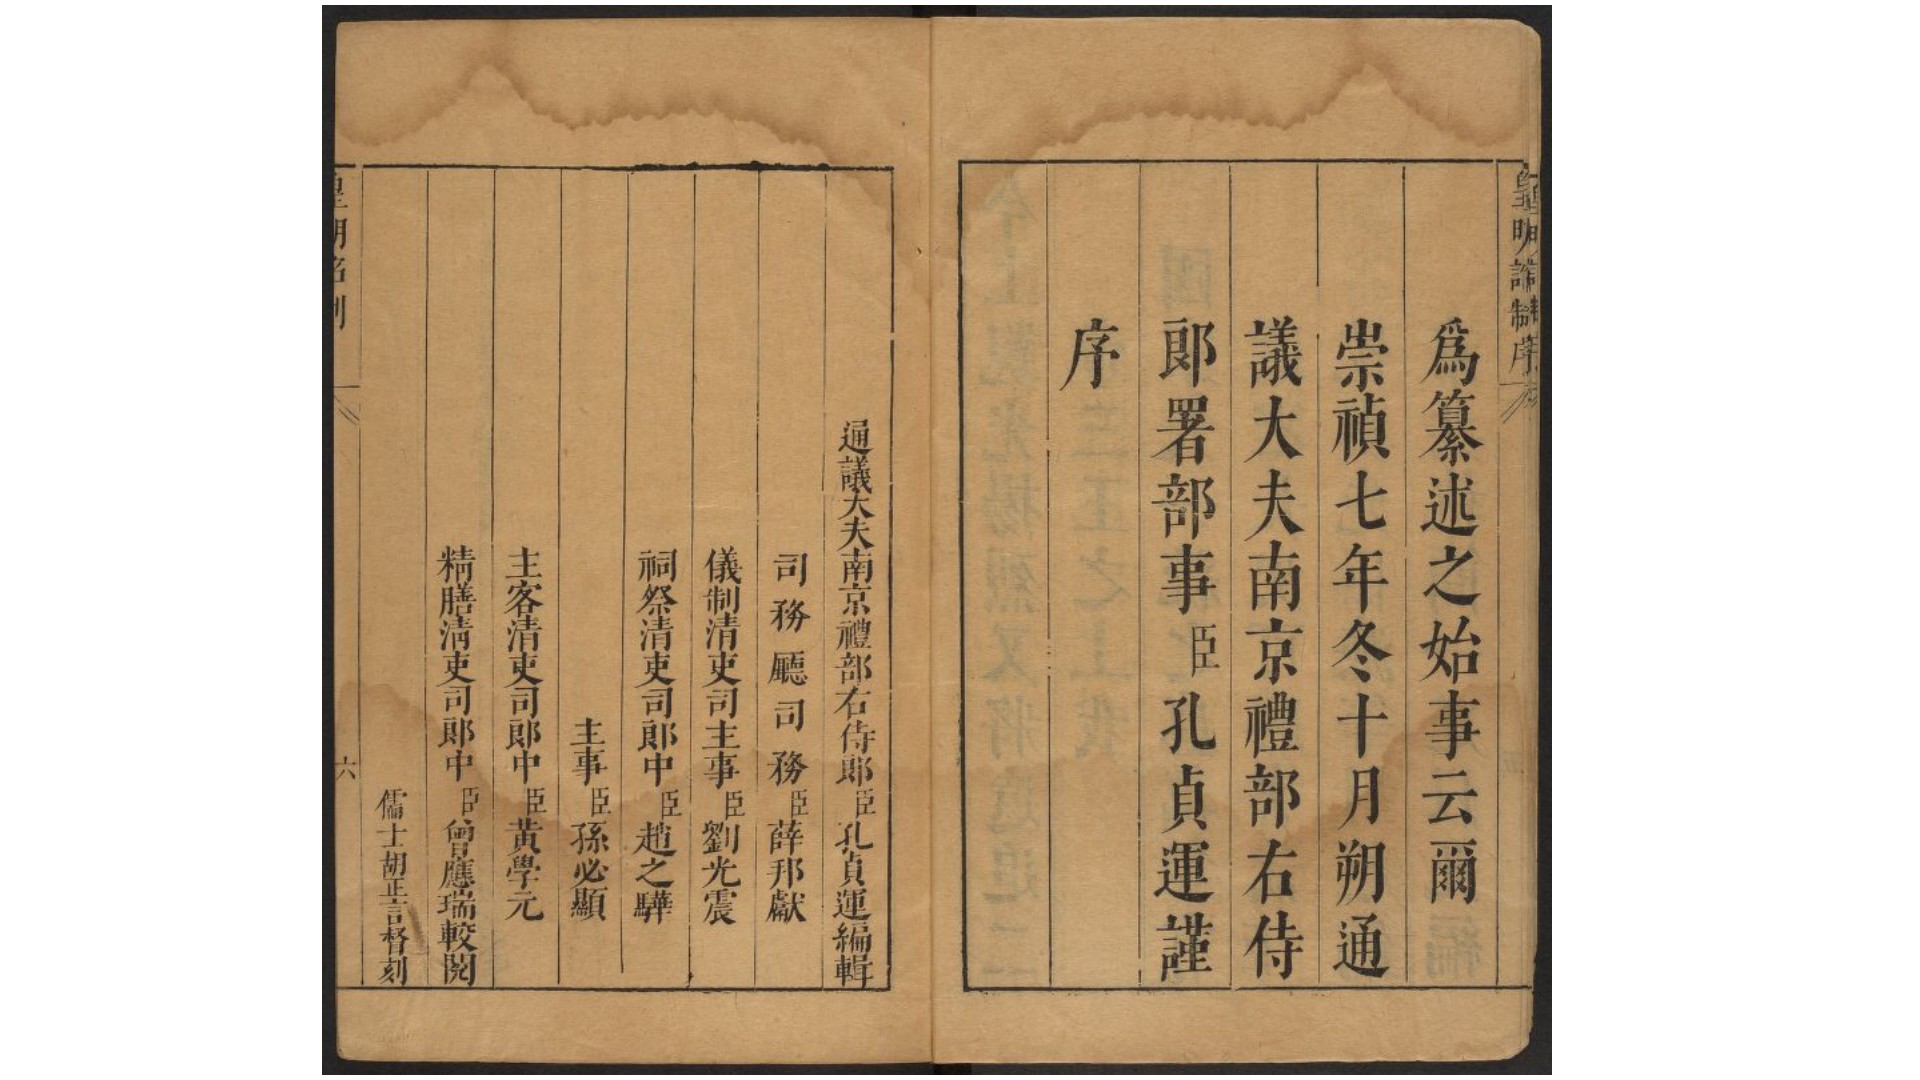 皇明詔制序
爲纂述之始事云爾
崇禎七年冬十月朔通
議大夫南京禮部右侍
郎署部事臣孔貞運謹
序
通議大夫南京禮部右侍郎臣孔貞運編輯
司務廳司務臣薛邦獻
儀制清吏司主事臣劉光震
祠祭清吏司郎中臣趙之驊
主事臣孫必顯
主客清吏司郎中臣黃學元
精膳清吏司郎中臣曾應瑞較閱
儒士胡正言督刻
六